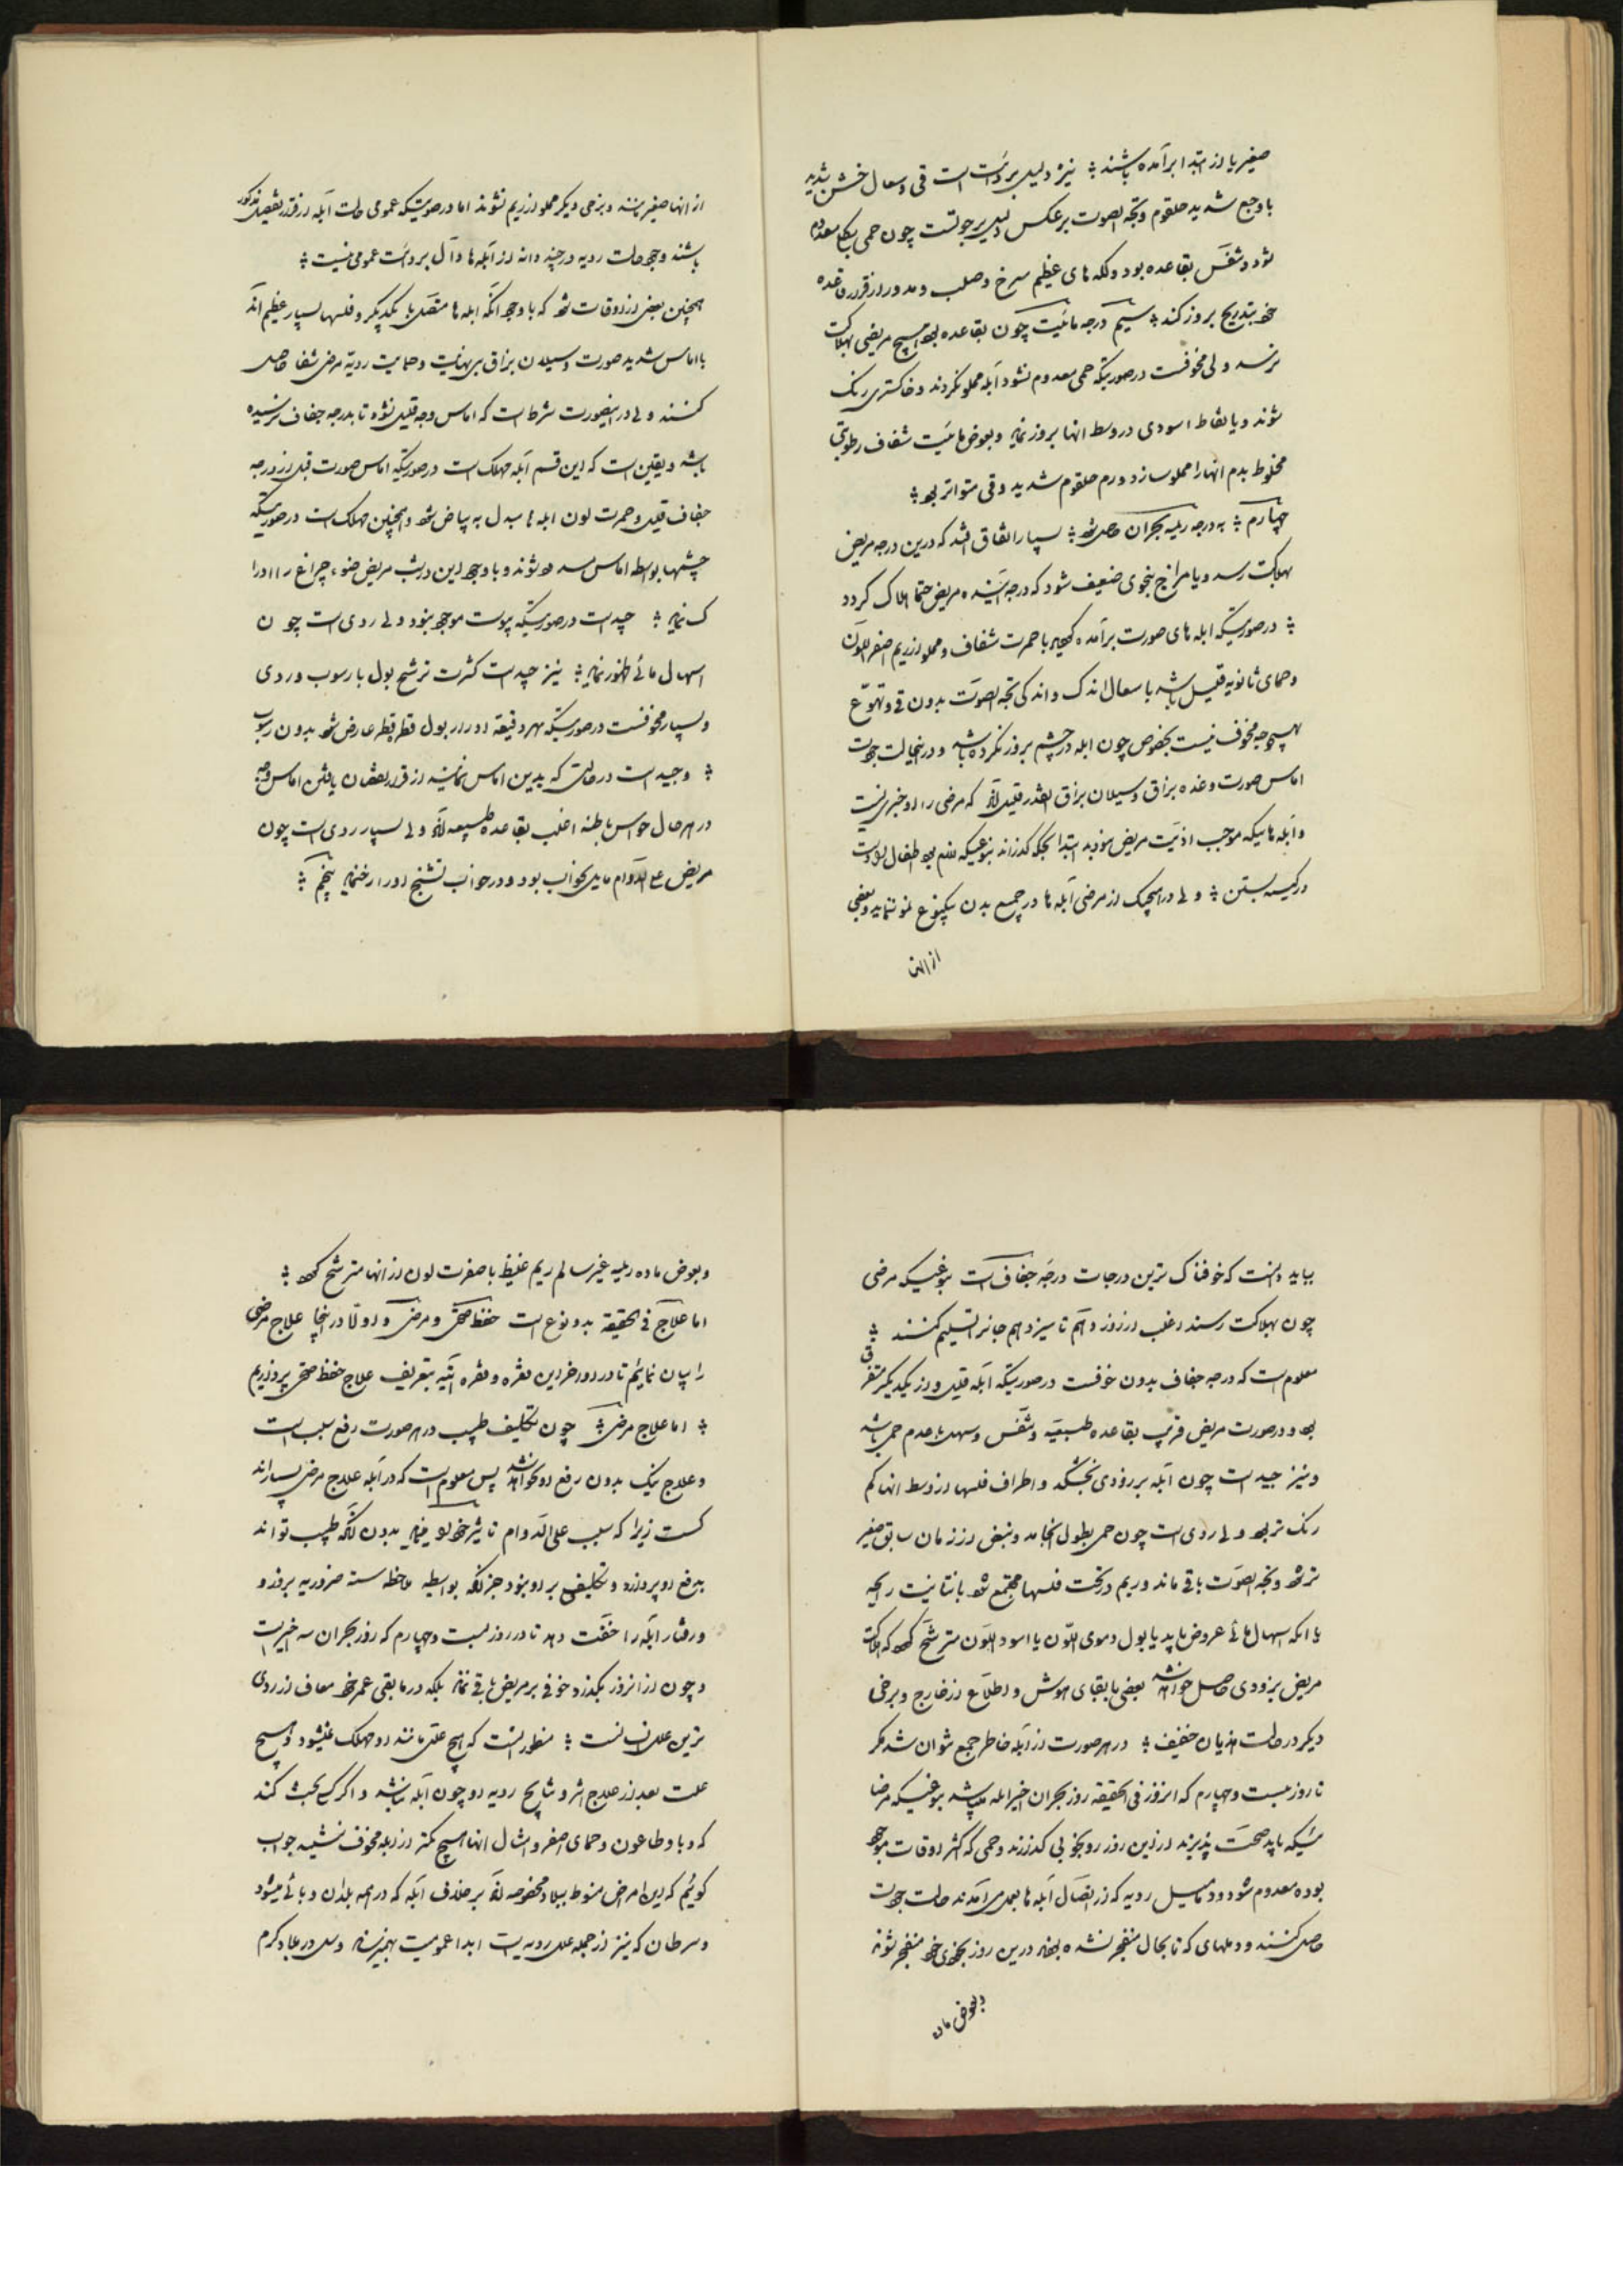 صغیر یا از ابتدا برآمده باشند ؛ نیز دلیل بر ردائت است قی و سعال خشن شدید
با وجع شدید حلقوم و بحّه الصوت برعکس دلیل بر جودتست چون حمی بکلی معدوم
شود و تنفّس بقاعده بود و لکه های عظیم سرخ و صلب و مدور از قرار قاعده
خود بتدریج بروز کند ؛ سیم درجه مائیّت چون بقاعده بود هیچ مریضی بهلاکت
نرسد ولی مخوفست درصورتیکه حمی معدوم نشود آبله مملو نگردند و خاکستری رنک
شوند و یا نقاط اسودی در وسط انها بروز نماید و بعوض مائیّت شفاف رطوبتی
مخلوط بدم انها را مملو سازد و ورم حلقوم شدید و قی متواتر بود ؛
چهارم ؛ به درجه ریمیه بحران حاصل شود ؛ بسیار اتفاق افتد که درین درجه مریض
بهلاکت رسد و یا مزاج بنحوی ضعیف شود که درجه آینده مریض حتما هلاک کردد
؛ درصورتیکه ابله های صورت برآمده با حمرت شفاف و مملو از ریم اصفر اللّون
و حمای ثانویه قلیل باشد با سعال اندک و اندکی بحّه الصوّت بدون قی و تهوّع
بهیچوجه مخوف نیست بخصوص چون ابله در چشم بروز نکرده باشد و درینحالت جودت
اماس صورت و غده بزاق و سیلان بزاق بقدر قلیل که مرضی را از او خبری نیست
و آبله هائیکه موجب اذیّت مریض بودند ابتدا بحکه کذراند بنوعیکه لازم بود اطفال را دست
در کیسه بستن ؛ ولی در هیچیک از مرضی آبله ها در جمیع بدن بیکنوع نمو ننماید و بعضی
از انها
از انها صغیر بمانند و برخی دیکر مملو از ریم نشوند اما درصورتیکه عمومی حالت آبله از قرار تفصیل مذکور
باشند وجود حالت ردیه در چند دانه از آبله ها دال بر ردائت عمومی نیست ؛
همچنین بعضی از اوقات شود که با وجود انکه ابله ها متصل بیکدیکر و فلسها بسیار عظیم اند
با اماس شدید صورت و سیلان بزاق بی نهایت و حمایت ردیّه مرضی شفا حاصل
کنند ولی در اینصورت شرط است که اماس وجه قلیل نشود تا بدرجه جفاف نرسیده
باشد و یقین است که این قسم آبله مهلک است درصورتیکه اماس صورت قبل از درجه
جفاف قلیل و حمرت لون ابله ها مبدل به بیاض شود و همچنین مهلک است درصورتیکه
چشمها بواسطه اماس مسدود شوند و با وجود این در شب مریض ضوء چراغ را ادرا
ک نماید ؛ جید است درصورتیکه یبوست موجود نبود ولی ردی است چون
اسهال مائی ظهور نماید ؛ نیز جید است کثرت ترشح بول با رسوب وردی
و بسیار مخوفست درصورتیکه هر دقیقه ادرار بول قطره قطره عارض شود بدون رسوب
؛ و جید است درحالتی که یدین اماس نمایند از قرار نقصان یافتن اماس وجه
در هر حال حواس باطنه اغلب بقاعده طبیعیه ولی بسیار ردی است چون
مریض علی الدّوام مایل بخواب بود و در خواب تشنج او را رخنماید پنجم ؛
بباید دانست که خوفناک ترین درجات درجه جفاف است بنوعیکه مرضی
چون بهلاکت رسند اغلب از روز دهم تا سیزدهم جانرا تسلیم کنند ؛
معلوم است که درجه جفاف بدون خوفست درصورتیکه آبله قلیل و از یکدیکر متفرق
بود و درصورت مریض قریب بقاعده طبیعیّه و تنفّس و سهل عدم حمی باشد
و نیز جید است چون آبله بر زودی بخشکد و اطراف فلسها از وسط انها کم
رنک تر بود ولی ردی است چون حمی بطول انجامد و نبض از زمان سابق صغیر
تر شود و بحّه الصوّت باقی ماند و ریم در تحت فلسها مجتمع شود با نتانیت رایحه
یا انکه اسهال مائی عروض یابد یا بول دموی اللّون یا اسود اللّون مترشّح که هلاکت
مریض بزودی حاصل خواهد شد بعضی با بقای هوش و اطلاع از خارج و برخی
دیکر در حالت هذیان خفیف ؛ در هر صورت از آبله خاطر جمع نتوان شد مکر
تا روز بیست و چهارم که انروز فی الحقیقه روز بحران اخیر ابله میباشد بنوعیکه مرضا
ئیکه باید صحّت پذیرند از این روز رو بخوبی کذارند و حمی که اکثر اوقات موجود
بوده معدوم شود و دمامیل ردیه که از اتصال آبله ها بعمل می آمدند حالت جودت
حاصل کنند و دملهای که تا بحال منفجر نشده بودند درین روز بخودی خود منفجر شوند
و بعوض ماده
و بعوض ماده ریمیه غیر سالم ریم غلیظ با صفرت لون از انها مترشح ؛
اما علاج فی الحقیقة بدو نوع است حفظ صحّتی و مرضی و اولا در اینجا علاج مرضی
را بیان نمائیم تا در اواخر این فقره و فقره آتیه بتعریف علاج حفظ صحتی پردازیم
؛ اما علاج مرضی ؛ چون تکلیف طبیب در هر صورت رفع سبب است
و علاج نیک بدون رفع او نخواهد شد پس معلوم است که در آبله علاج مرضی بسیار اند
کست زیرا که سبب علی الدّوام تاثیر خود را مینماید بدون انکه طبیب تواند
بدفع او پردازد و تکلیفی بر او نبود جز انکه بواسطه ملاحظه سته ضروریه بروز و
و رفتار ابله را خفّت دهد تا در روز بیست و چهارم که روز بحران اخیر است
و چون از انروز بکذرد خوفی بر مریض باقی نماند بلکه در مابقی عمر خود معاف از ردی
ترین علل انسانست ؛ منظور اینست که هیچ علتی مانند او مهلک نمیشود و هیچ
علت بعد از علاج اثر و نتایج ردیه او چون آبله نباشد و اکر کسی بحث کند
که وبا و طاعون و حمای اصفر و امثال انها هیچ کمتر از ابله مخوف نیستند جواب
کوئیم که این امراض منوط ببلاد مخصوصه اند بر خلاف آبله که در همه بلدان وبائی میشود
و سرطان که نیز از جمله علل ردیه است ابدا عمومیت بهم نرساند و سل در بلاد کرم